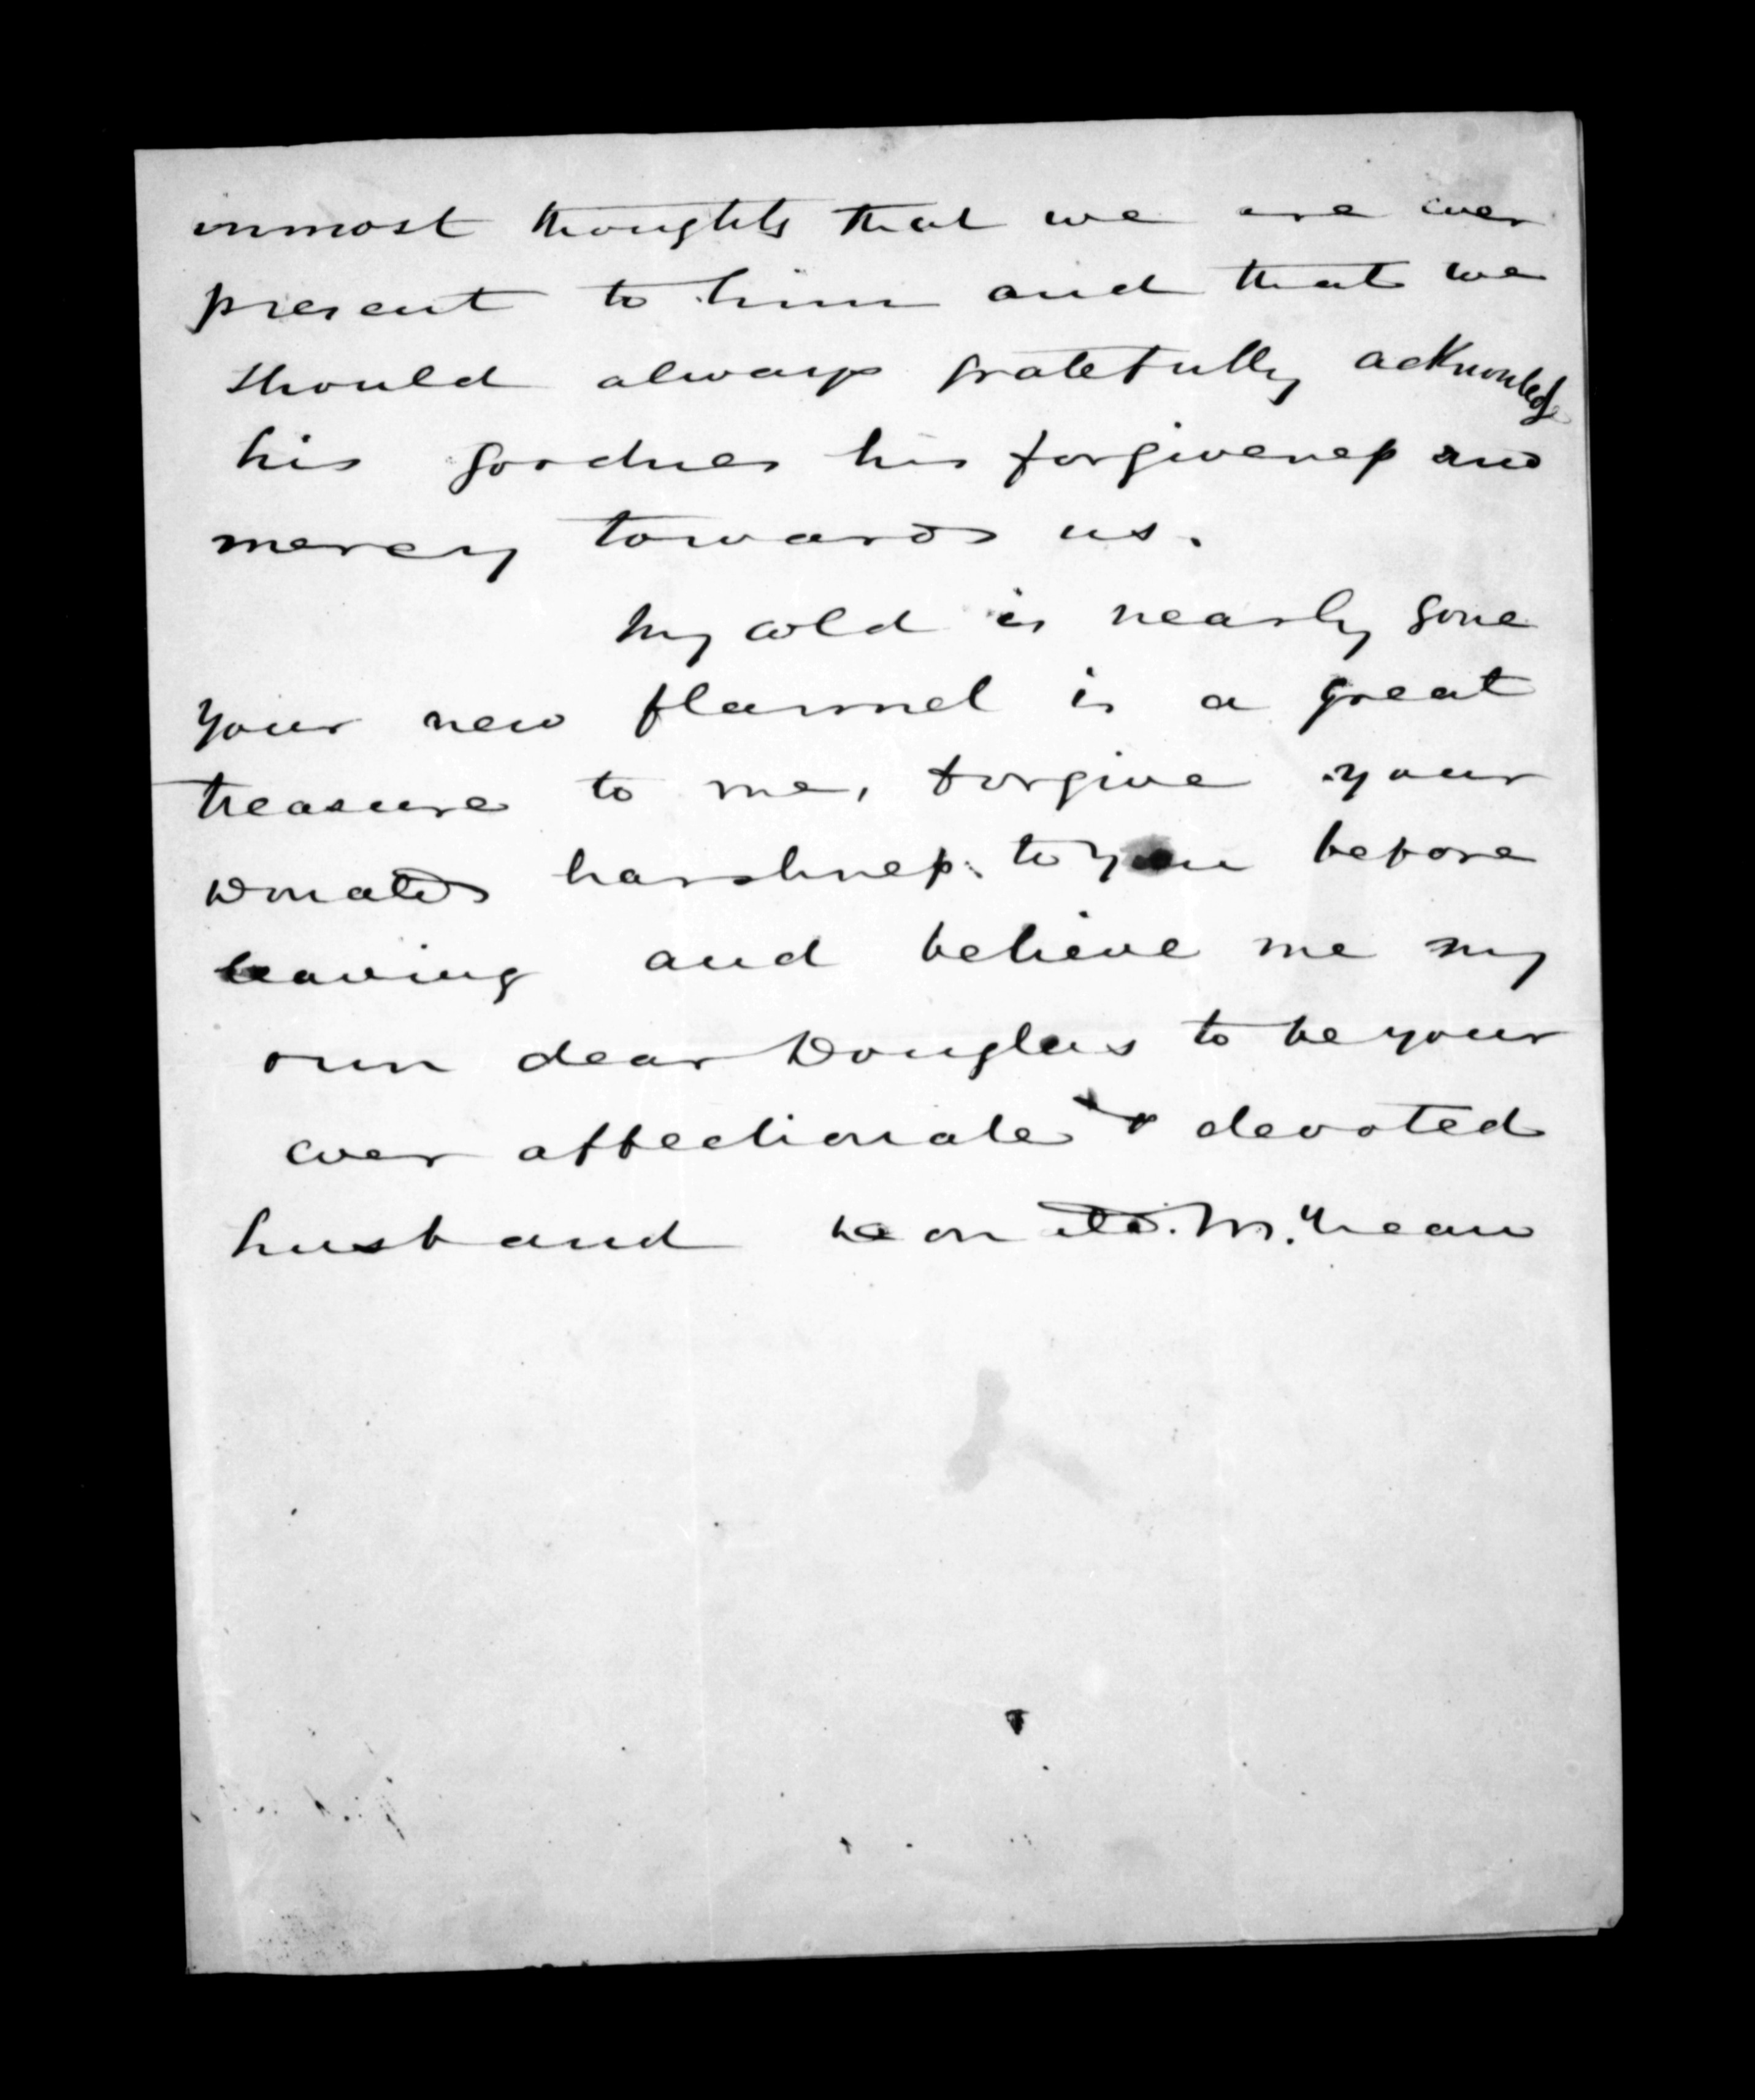 inmost thoughts that we are ever
present to him and that we
should always gratefully acknowledge
his goodness his forgiveness and
mercy towards us.
My cold is nearly gone
your new flannel is a great
treasure to me, forgive your
Donald's harshness to you before
leaving and believe me my
own dear Douglas to be your
ever affectionate & devoted
husband Donald. McLean